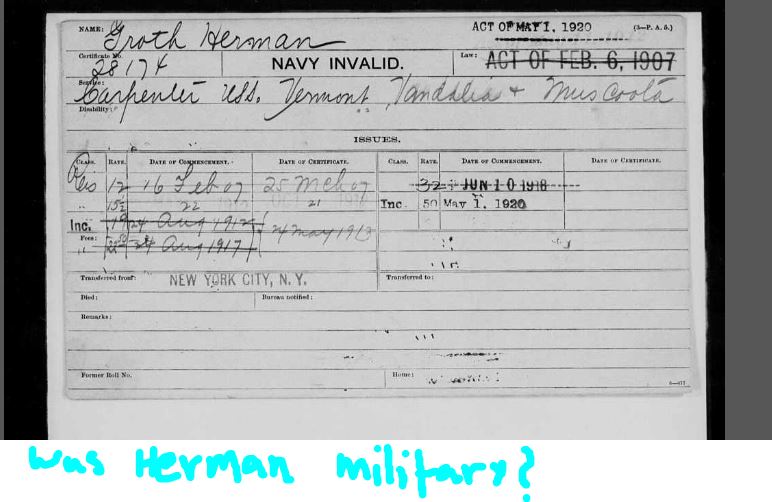 NAME: Groth Herman
ACT OF MAY 1, 1920 (3—P. A. 5.)
Certificate No. 28174
NAVY INVALID.
Law: ACT OF FEB. 6, 1907
Service: Carpenter USS. Vermont, Vandalia + Muscoota
Disability:
ISSUES.
CLASS. RATE. DATE OF COMMENCEMENT. DATE OF CERTIFICATE. CLASS. RATE. DATE OF COMMENCEMENT. DATE OF CERTIFICATE.
12 16 Feb 07 25 Mch 07 32 JUN 10 1918
15½ 22 21 Inc 50 May 1, 1920
Inc. 19 24 Aug 1912 24 May 1913
Fees: 24 Aug 1917
Transferred from: NEW YORK CITY, N. Y. Transferred to:
Died: Bureau notified:
Remarks:
Former Roll No. Home:
was Herman military?